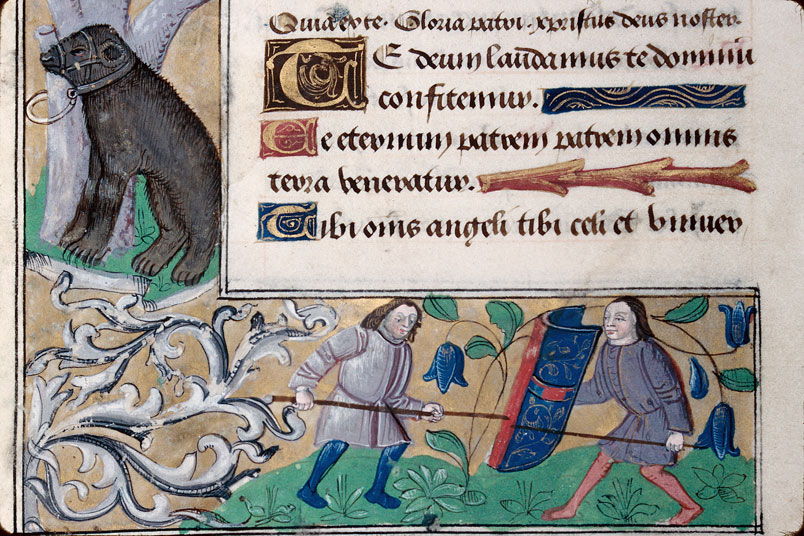 Quia eyte. Gloria patri. xpristus deus noster.
TE deum laudamus te dominu
confitemur.
Te eternum patrem patrem omnis
terra veneratur.
Tibi oms angeli tibi celi et vniuer